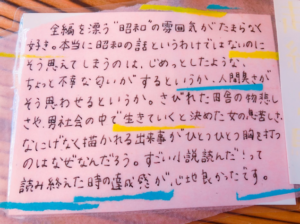 全編を漂う“昭和”の雰囲気がたまらなく
好き。本当に昭和の話というわけではないのに
そう思えてしまうのは、じめっとしたような、
ちょっと不穏な匂いがするというか、人間臭さが
そう思わせるというか。さびれた田舎の物悲し
さや、男社会の中で生きていくと決めた女の息苦しさ、
なにげなく描かれる出来事がひとつひとつ胸を打つ
のはなぜなんだろう。すごい小説読んだ!って
読み終えた時の達成感が心地良かったです。